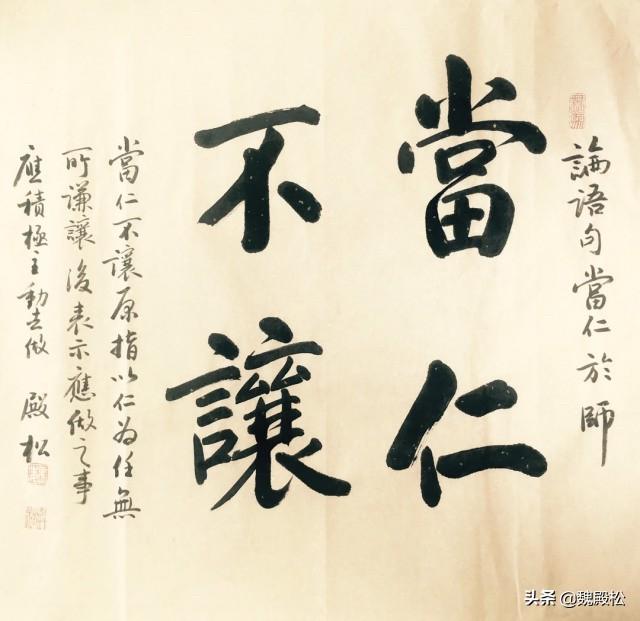 論语句當仁於師
當仁
不讓
當仁不讓原指以仁为任無
所谦讓後表示應做之事
應積極主動去做 殿松
头条 @魏殿松